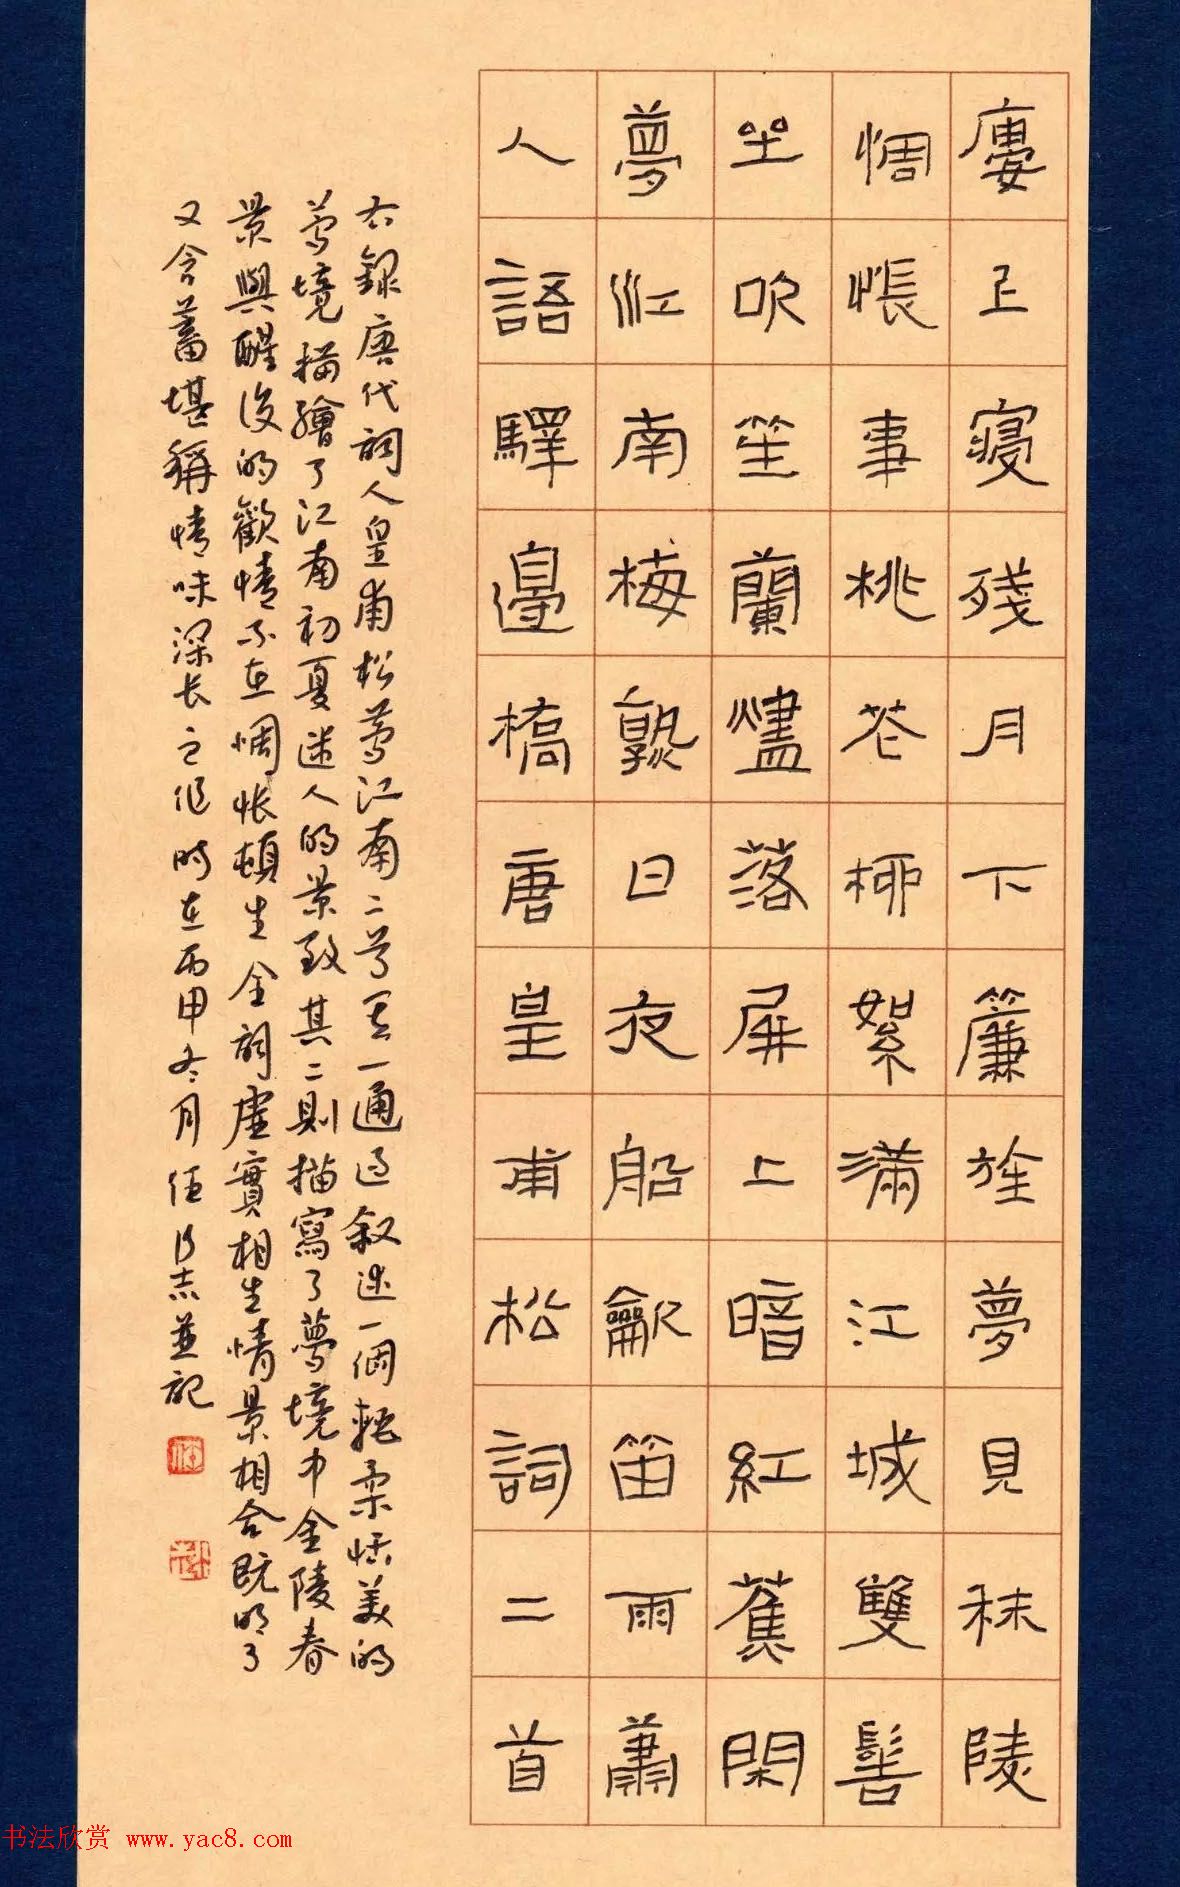 廔上寢殘月下簾旌夢見秣陵
惆悵事桃苍桺絮滿江城雙髻
坐吹笙蘭燼落屏上暗紅蕉閑
夢江南梅孰日夜船龡笛雨蕭
人語驛邊橋唐皇甫松詞二首
右録唐代詞人皇甫松夢江南二首其一通过叙述一個輕柔恬美的
夢境描繪了江南初夏迷人的景致其二則描寫了夢境中金陵春
景與醒後的歡情不在惆怅頓生全詞虛實相生情景相合既明了
又含蓄堪稱情味深长之作時在丙申冬月任
志並記
书法欣赏 www.yac8.com